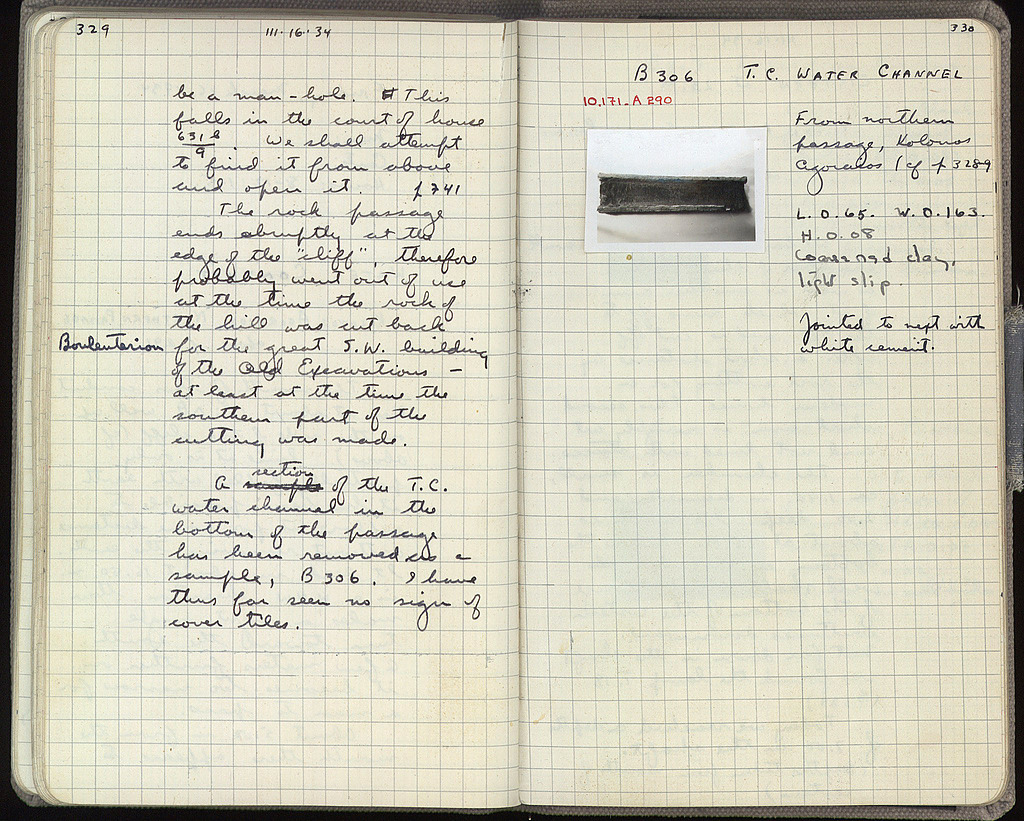 329
III·16·34
be a man-hole. This
falls in the court of house
631 b
9 . We shall attempt
to find it from above
and open it. p 741
The rock passage
ends abruptly at the
edge of the "cliff", therefore
probably went out of use
at the time the rock of
the hill was cut back
Bouleuterion for the great S.W. building
of the Old Excavations –
at least at the time the
southern part of the
cutting was made.
section
A sample of the T.C.
water channel in the
bottom of the passage
has been removed as a
sample, B 306. I have
thus far seen no sign of
cover tiles.
330
B 306 T.C. WATER CHANNEL
10.171. A 290
From northern
passage, Kolonos
Agoraios (cf p 328-9
L. 0.65. W. 0.163.
H. 0.08
clay,
light slip.
Jointed to next with
white cement.